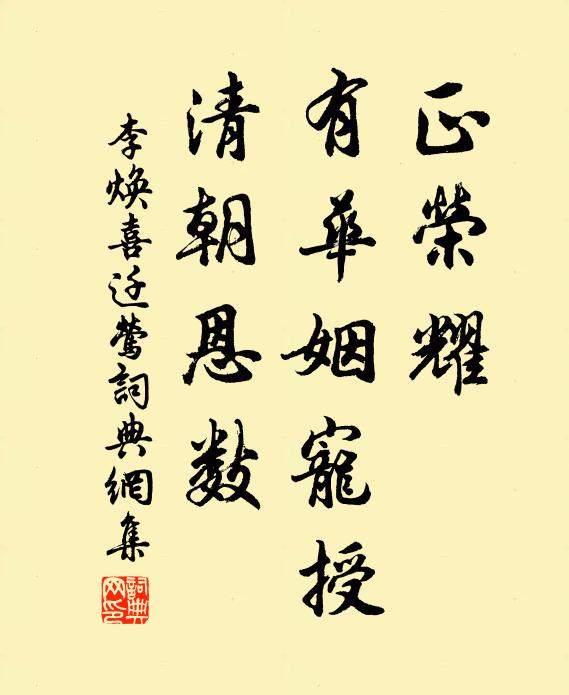 正榮耀
有華姻寵授
清朝恩数
李焕喜迁鶯詞典網集
詞典網印